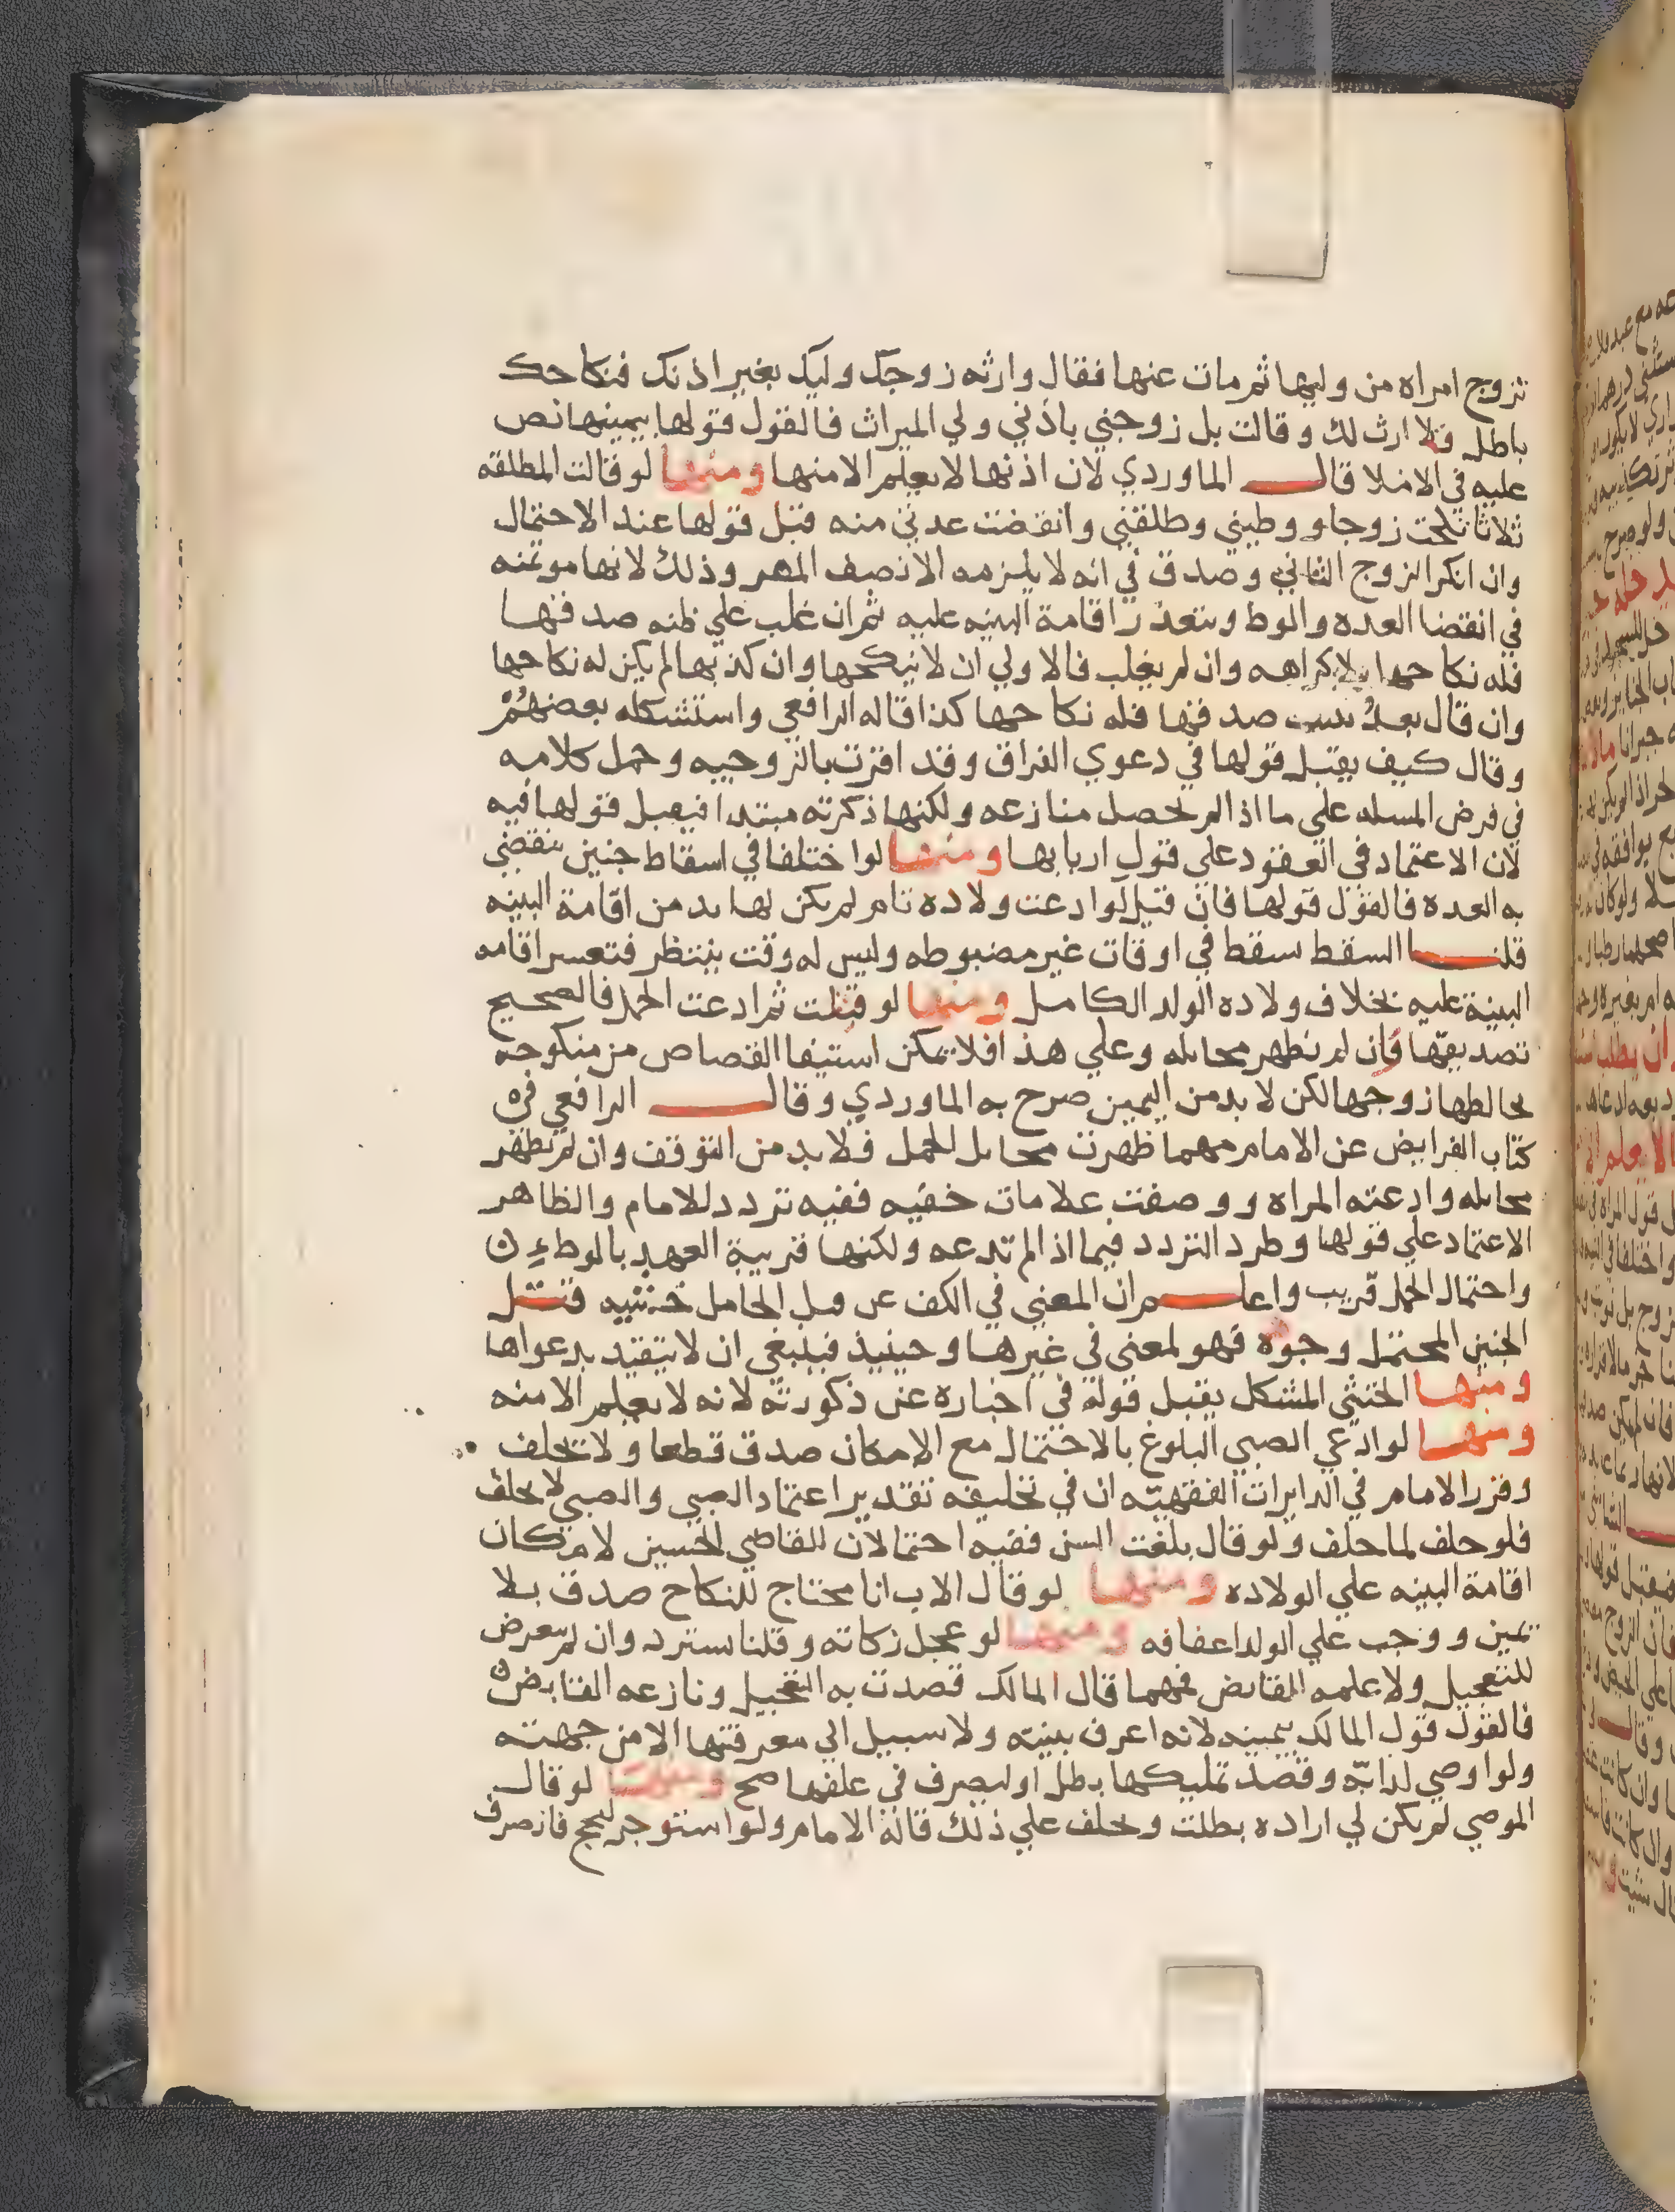 تزوج امراه من وليها ثم مات عنها فقال وارثه زوجك وليك بغير اذنك فنكاحك
باطل فلا ارث لك وقالت بل زوجني باذني ولي الميراث فالقول قولها بيمينها نص
عليه في الاملا قال الماوردي لان اذنها لا يعلم الا منها ومنها لو قالت المطلقه
ثلاثا نكحت زوجا ووطيني وطلقني وانقضت عدتي منه قبل قولها عند الاحتمال
وان انكر الزوج الثاني وصدق في انه لا يلزمه الا نصف المهر وذلك لانها موتمنه
في انقضا العده والوط ويتعذر اقامة البينه عليه ثم ان غلب علي ظنه صدقها
فله نكاحها بلا كراهه وان لم يغلب فالاولي ان لا ينكحها وان كذبها لم يكن له نكاحها
وان قال بعد صدقها فله نكاحها كذا قاله الرافعي واستشكله بعضهم
وقال كيف يقبل قولها في دعوي الفراق وقد اقرت بالزوجيه وحمل كلامه
في فرض المسله علي ما اذا لم تحصل منازعه ولكنها ذكرته مبتدا فيقبل قولها فيه
لان الاعتماد في العقود علي قول اربابها ومنها لو اختلفا في اسقاط جنين تنقضي
به العده فالقول قولها فان قيل لو ادعت ولاده تام لم يكن لها بد من اقامة البينه
قلنا السقط سقط في اوقات غير مضبوطه وليس له وقت ينتظر فتعسر اقامه
البينة عليه بخلاف ولاده الولد الكامل ومنها لو قتلت ثم ادعت الحمل فالصحيح
تصديقها فان لم تظهر مخايله وعلي هذا فلا يمكن استيفا القصاص من منكوحه
يخالطها زوجها لكن لا بد من اليمين صرح به الماوردي وقال الرافعي في
كتاب الفرايض عن الامام مهما ظهرت مخايل الحمل فلا بد من التوقف وان لم تظهر
مخايله وادعته المراه ووصفت علامات خفيه ففيه تردد للامام والظاهر
الاعتماد علي قولها وطرد التردد فيما اذا لم تدعه ولكنها قريبة العهد بالوطء
واحتمال الحمل قريب واعلم ان المعني في الكف عن قتل الحامل خشيه قتل
الجنين المحتمل وجوده فهو لمعني في غيرها وحينيذ فينبغي ان لا يتقيد بدعواها
ومنها الخنثي المشكل يقبل قوله في اخباره عن ذكورته لانه لا يعلم الا منه
ومنها لو ادعي الصبي البلوغ بالاحتمال مع الامكان صدق قطعا ولا تحلف
وقرر الامام في الدايرات الفقهيه ان في تحليفه تقدير اعتماد الصبي والصبي لا يحلف
فلو حلف لما حلف ولو قال بلغت السن ففيه احتمالان للقاضي الحسين لامكان
اقامة البينه علي الولاده ومنها لو قال الاب انا محتاج للنكاح صدق بلا
يمين ووجب علي الولد اعفافه ومنها لو عجل زكاته وقلنا يسترد وان لم يتعرض
للتعجيل ولا علمه القابض فمهما قال المالك قصدت به التعجيل ونازعه القابض
فالقول قول المالك بيمينه لانه اعرف بنيته ولا سبيل الي معرفتها الا من جهته
ولو اوصي لدابه وقصد تمليكها بطل او ليصرف في علفها صح ومنها لو قال
الموصي لم يكن لي اراده بطلت وحلف علي ذلك قاله الامام ولو استوجر ليحج فانصرف